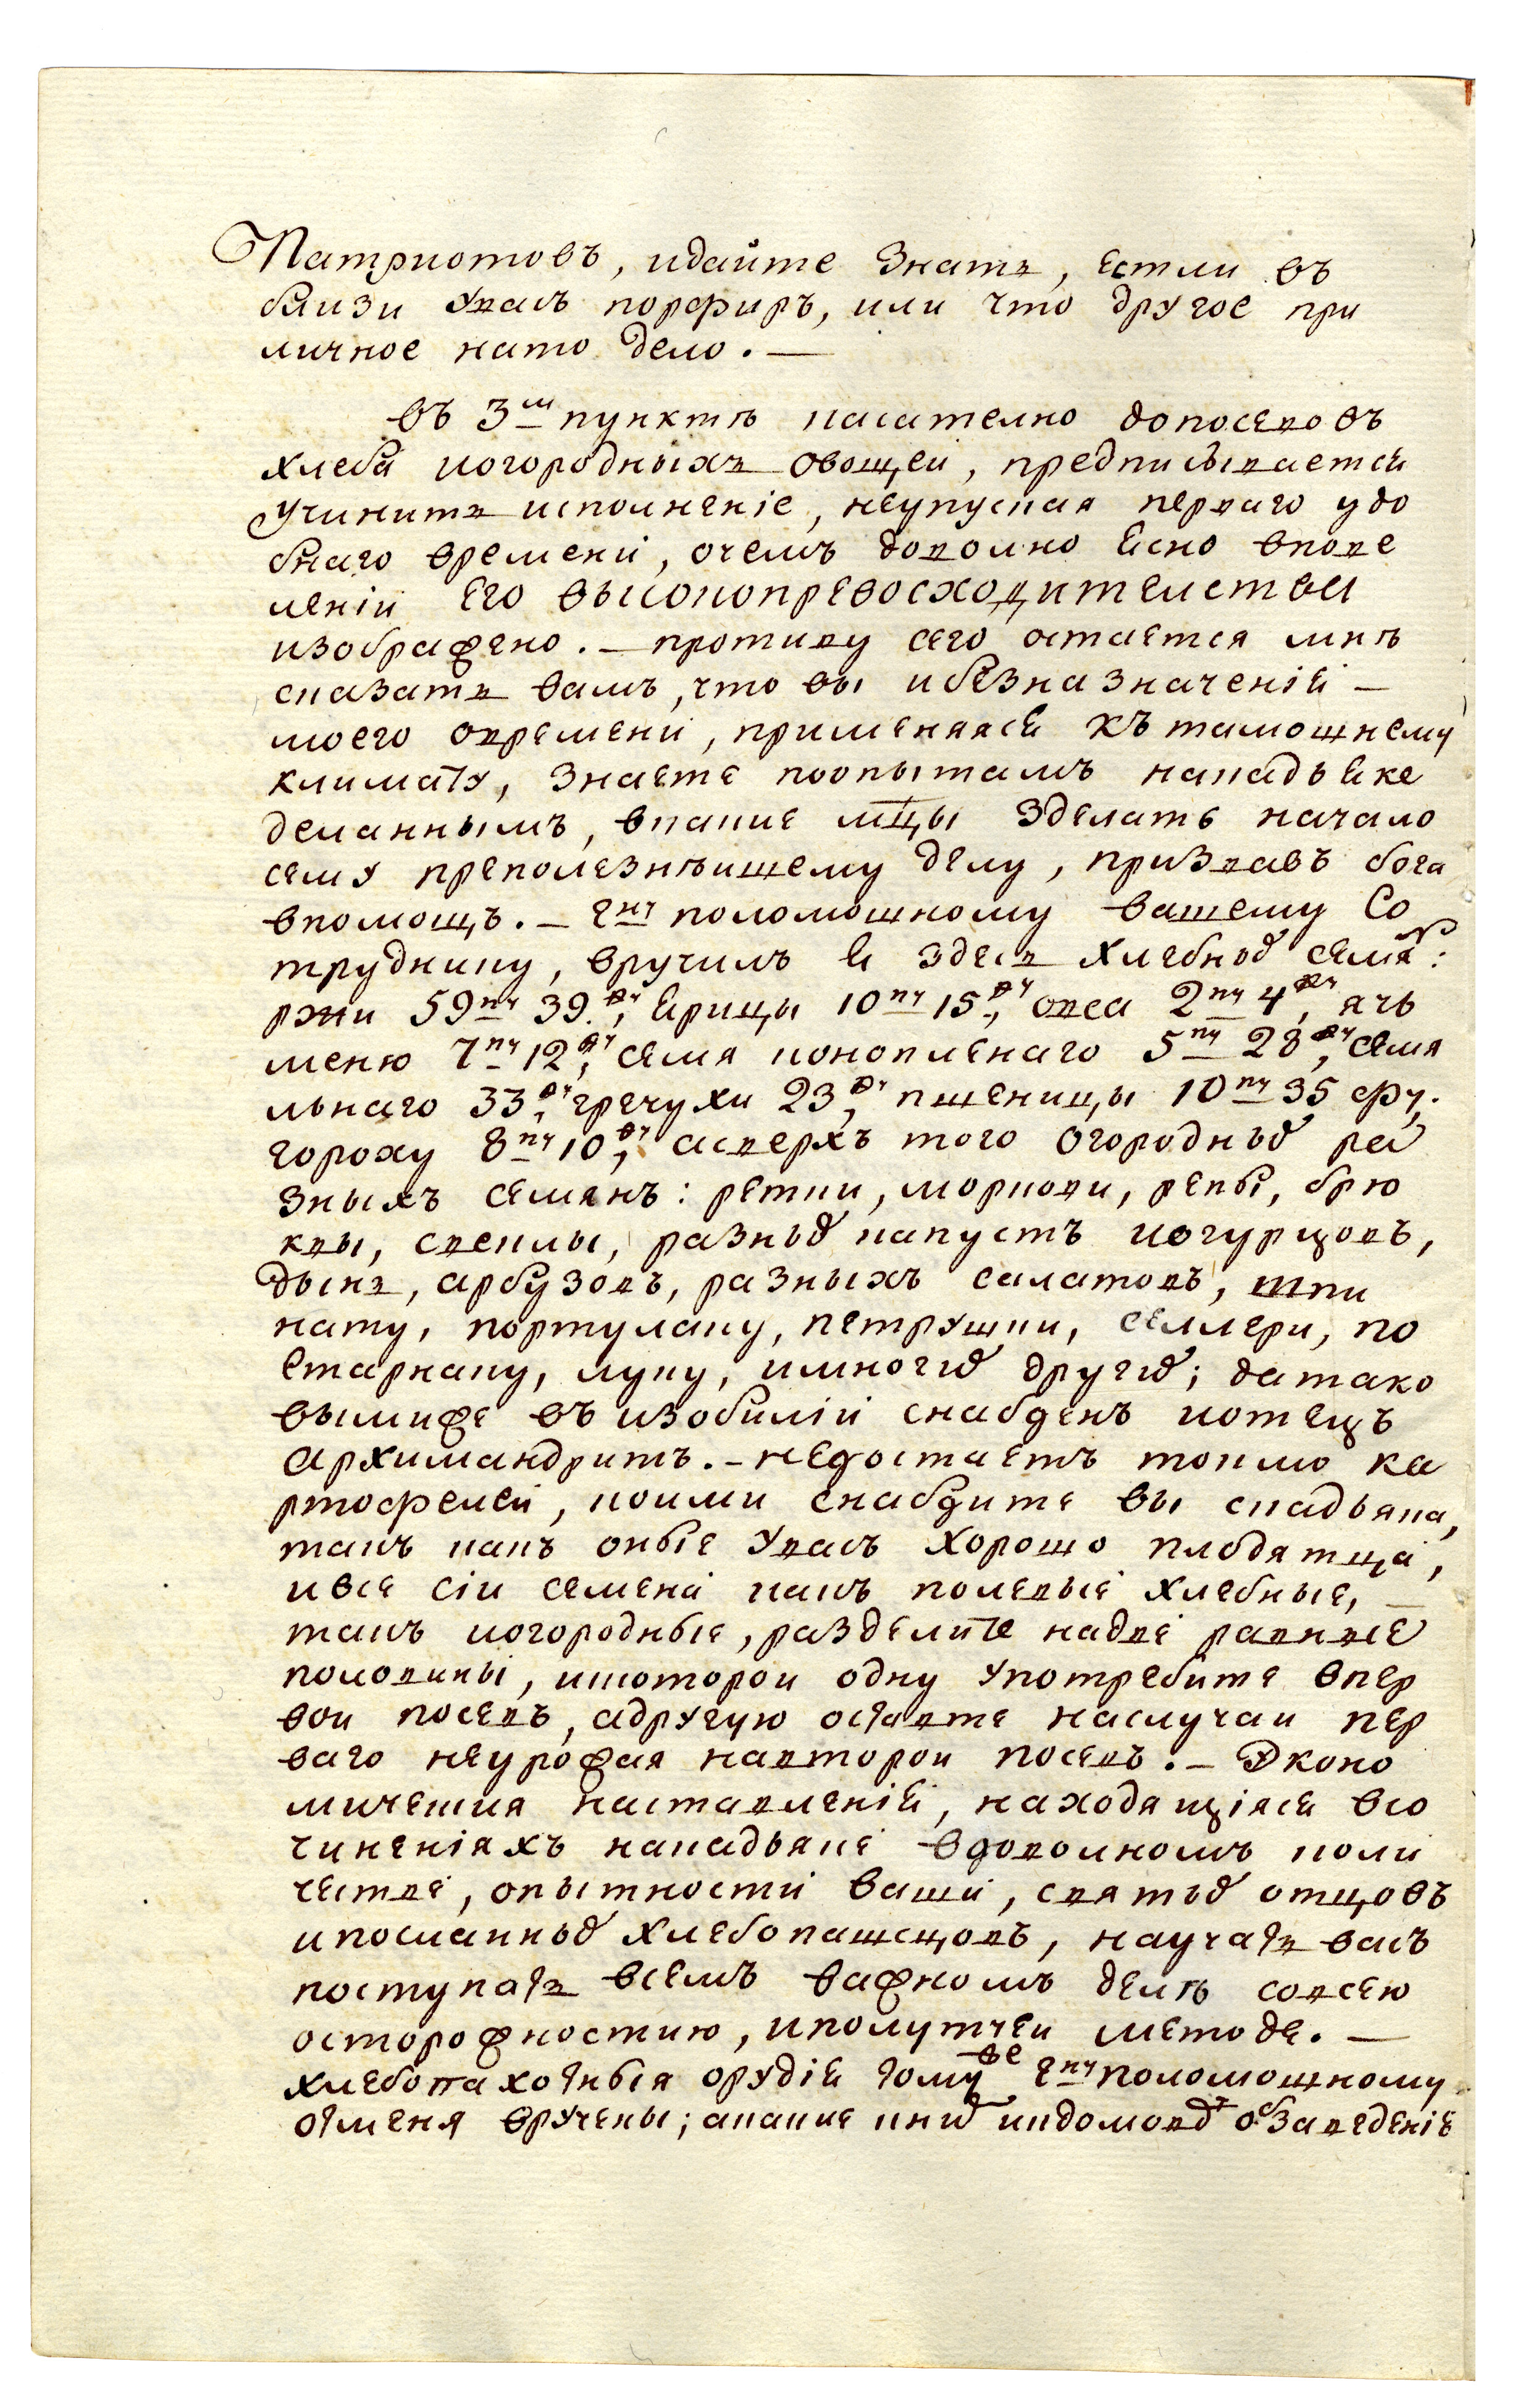 Патриотовъ, идайте Знать, Естли въ
близи Увасъ порфиръ, или что другое при
личное нато Дело. —
Въ 3м пунктѣ касателно допосевовъ
хлеба иогородныхъ Овощей, предписывается
Учинить исполненіе, неупуская перваго удо
бнаго времени, очемъ доволно Ясно вповѣ
леніи Его Высокопревосходителства
изображено. — противу сего остается мнѣ
сказать Вамъ, что вы ибезназначенія —
моего овремени, применяясь къ тамошнему
климату, Знаете поопытамъ накадьяке
деланнымъ, вкакие мцы Зделать начало
сему преполезнѣишему делу, призвавъ бога
впомощъ. — Гну поломошному Вашему Со
труднику, вручилъ я здесь хлебных семя:
ржи 59пу 39.фу, Ярицы 10пу 15фу, овса 2пу 4фу, ячь
меню 7пу 12фу, семя конопленаго 5пу 28фу, семя
льнаго 33фу, гречухи 23фу, пшеницы 10пу 35 фу,
гороху 8пу 10фу, асверхъ того Огородных ра
зныхъ семянъ: ретки, моркови, репы, брю
квы, свеклы, разных капустъ иогурцовъ,
Дынь, арбузовъ, разныхъ салатовъ, шпи
нату, портулаку, петрушки, селлери, по
старнаку, луку, имногих других; да тако
вымиже въ изобиліи снабденъ иотецъ
Архимандритъ. — недостаетъ токмо ка
ртофелей, коими снабдите вы скадьяка,
такъ какъ оные Увасъ Хорошо плодятца,
ивсе сіи семена какъ полевые хлебные, —
такъ иогородные, разделите надве равные
половины, искоторои одну Употребите впер
вои посевъ, адругую оставте наслучаи пер
ваго неурожая навторои посевъ. — Эконо
мическия Наставленія, находящіяся всо
чиненіяхъ накадьяке вдоволномъ коли
честве, опытности ваши, святых отцовъ
ипосланных хлебопашецовъ, научать васъ
поступать всемъ важномъ делѣ совсею
осторожностию, иполутчеи методе. —
хлебопахотныя орудія томуже Гну поломошному
отменя вручены; акакие книг индомовд обзаведеніе